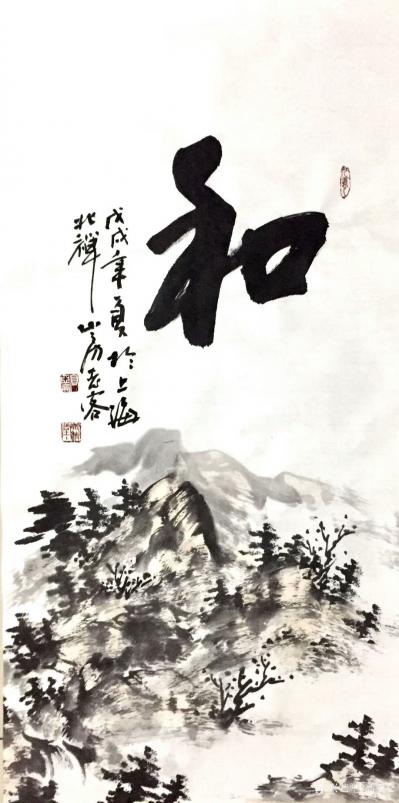 和
戊戌年夏於上海
北禅山房老客